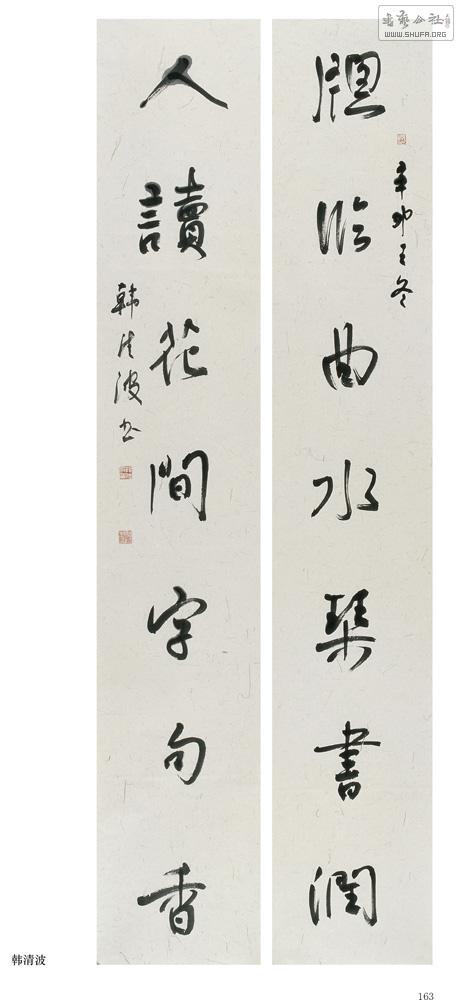 書藝公社
WWW.SHUFA.ORG
牕臨曲水琴書潤
辛卯之冬
人讀花間字句香
韓清波书
韩清波
163